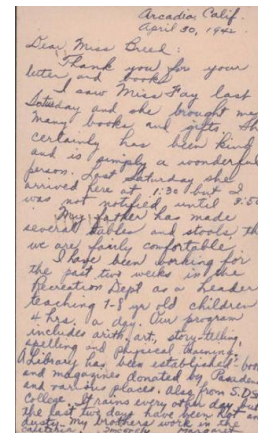 Arcadia, Calif.
April 30, 1942
Dear Miss Breed:
Thank you for your
letter and books.
I saw Miss Fay last
Saturday and she brought me
many books and gifts. She
certainly has been kind
and is simply a wonderful
person. Last Saturday she
arrived here at 1:30 but I
was not notified until 3:50
My father has made
several tables and stools, th
we are fairly comfortable.
I have been working for
the past two weeks in the
Recreation Dept as a leader
teaching 7-8 yr old children
4 hrs. a day. Our program
includes arith, art, story-telling,
spelling and physical training.
A Library has been established - book
and magazines donated by Pasadena
and various places. Also from S.D.S
College. It rains every other day but
the last two days have been hot and
dusty. My brothers work in the
cafeteria. Sincerely Margaret